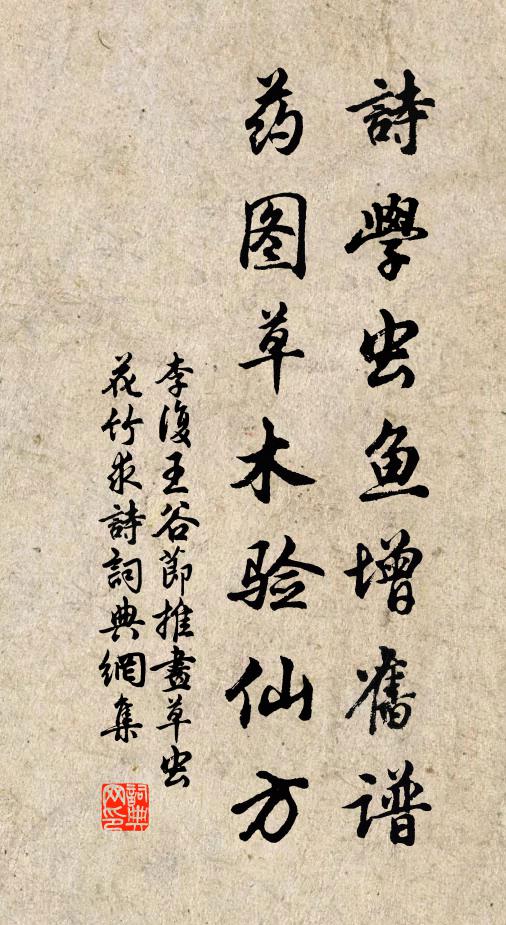 詩學虫鱼增舊谱
药图草木验仙方
李復王谷節推畫草虫
花竹求詩詞典網集
詞典網印